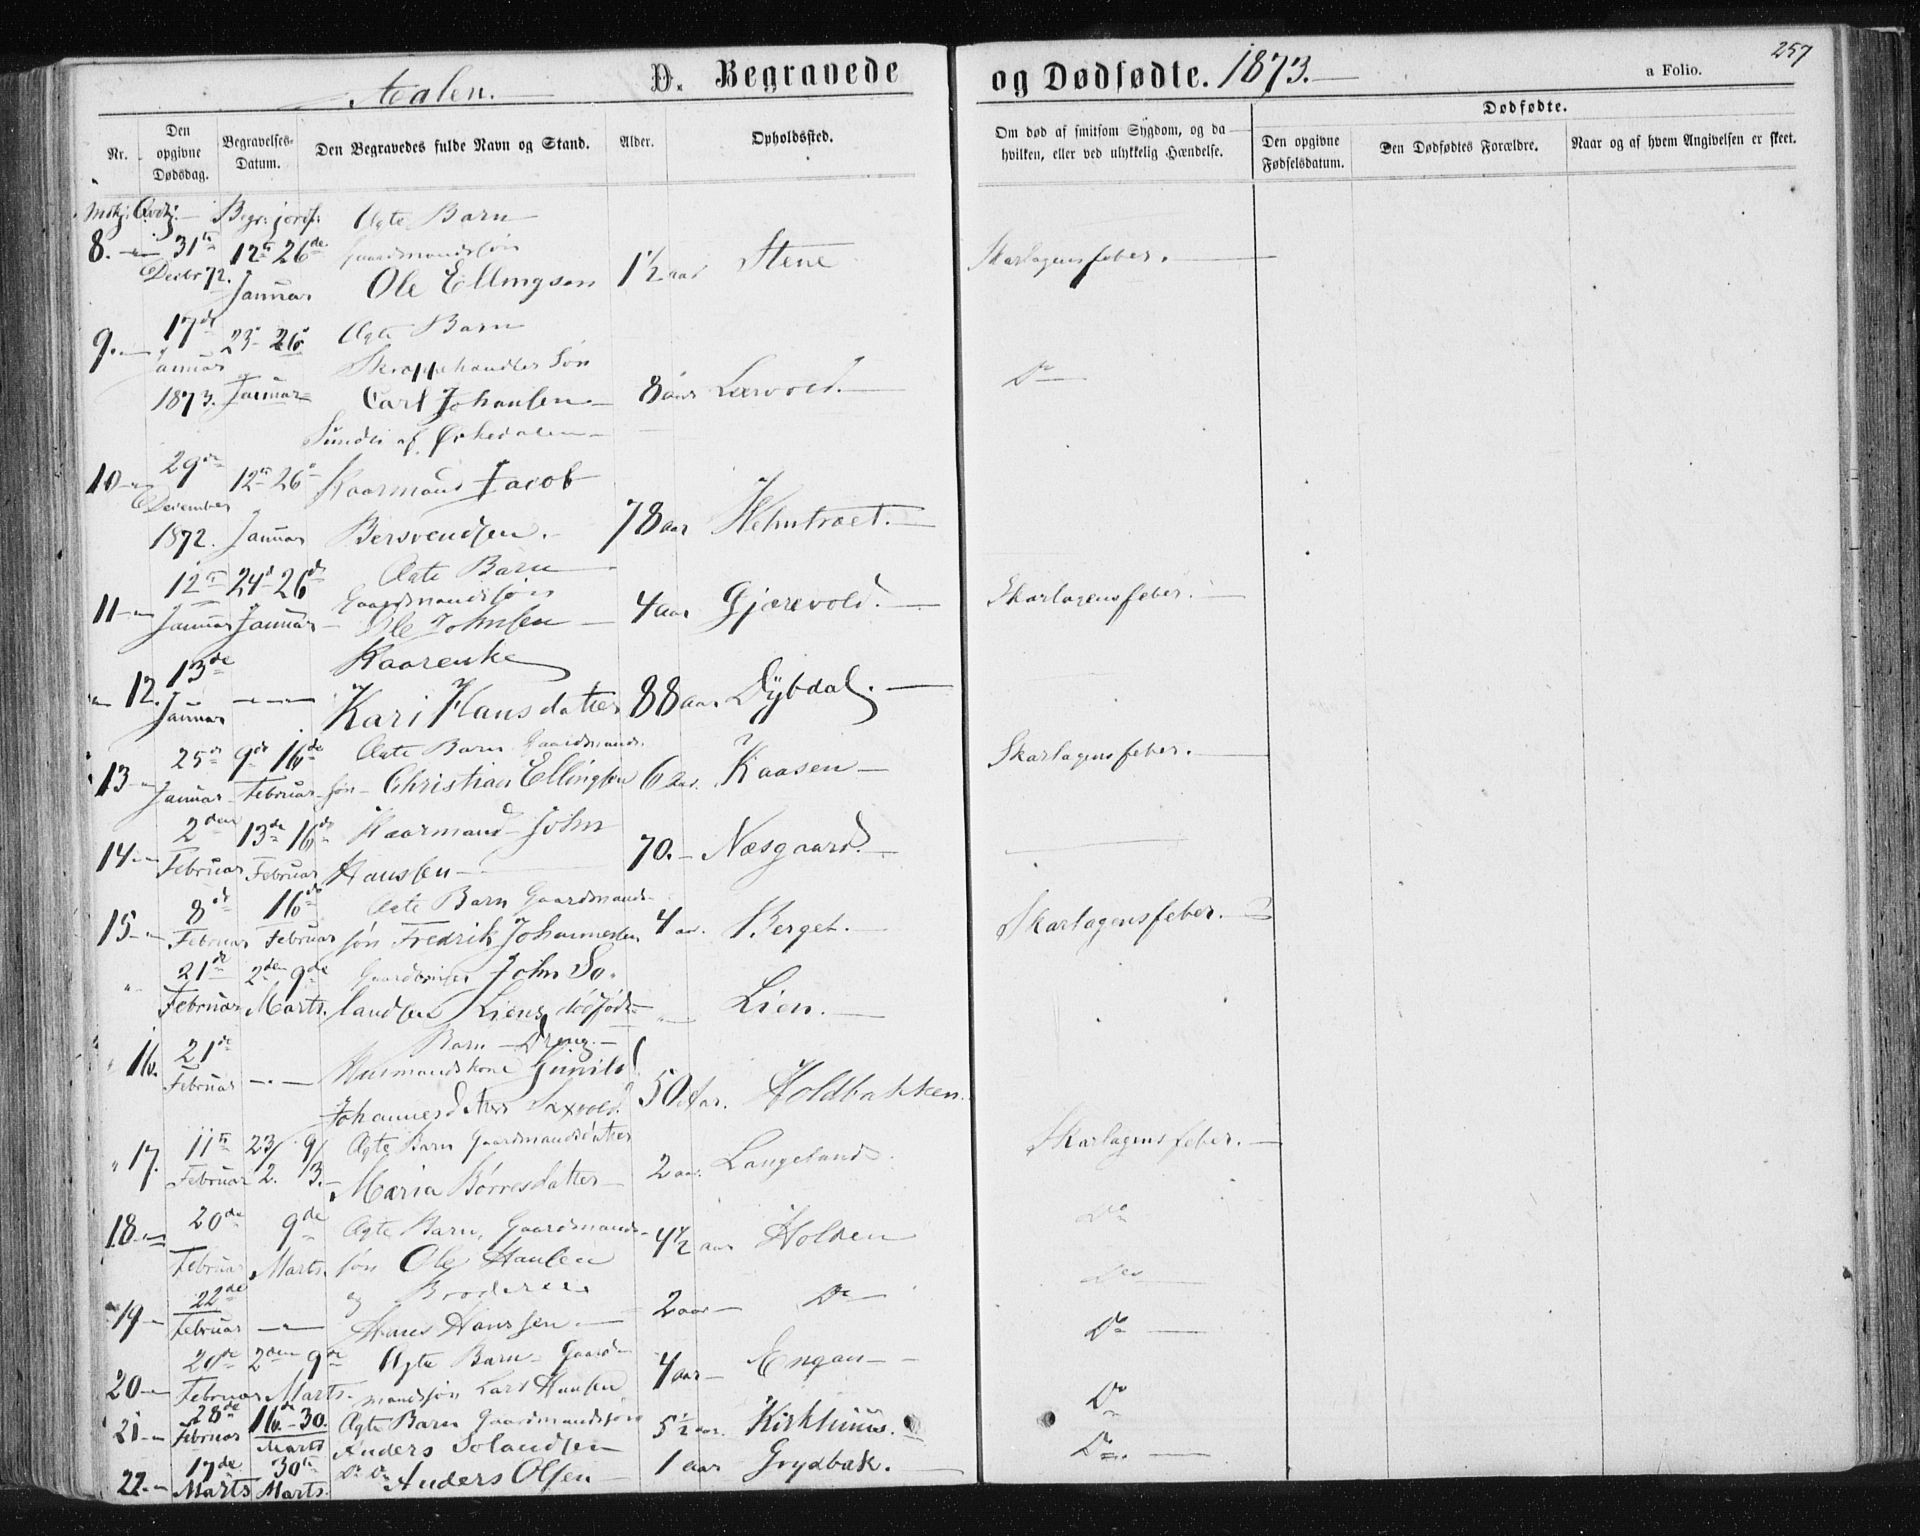 Aalen.
D. Begravede og Dødfødte. 1873.
a Folio.
257
Nr.
Den opgivne Dødsdag.
Begravelses-Datum.
Den Begravedes fulde Navn og Stand.
Alder.
Opholdssted.
Om død af smitsom Sygdom, og da hvilken, eller ved ulykkelig Hændelse.
Dødfødte.
Den opgivne Fødselsdatum.
Den Dødfødtes Forældre.
Naar og af hvem Angivelsen er skeet.
Ægte Barn
8. 31te 12te 26de Gaardmandssøn
Decbr 72. Januar Ole Ellingsen 1½ aar Stene Skarlagensfeber.
9. 17de 23- 26 Ægte Barn
Januar Skræppehandler Søn
1873. Januar Carl Johansen 8 aar Lervold. Do
af Ørkedalen
10 29de 12te 26 Kaarmand Jacob
December
1872. Januar Bersvendsen. 78 aar
12te 24d 26d Ægte Barn
11 Gaardmandssøn
Januar Januar Ole Johnsen 4 aar Gjærevold. Skarlagensfeber.
13de Kaarenke
12. Januar Kari Hansdatter 88 aar Dybdal.
25de 9de 16de Ægte Barn Gaardmands
13 Januar Februar søn Christian Ellingsen 6 aar. Kaasen Skarlagensfeber.
2den 13de 16de Kaarmand John
14 Februar Februar Hansen 70. Næsgaard.
8de 16de Ægte Barn Gaardmands
15 Februar Februar søn Fredrik Johannesen 4 aar. Berget. Skarlagensfeber.
21de 2den 9de John So-
Februar Marts. landsen Liens dødfødte Lien.
Barn Dreng.
16. 21de Husmandskone Gunild
Februar Johannesdatter 50 Aar. Holdbakken.
17. 11te 23/ 9/ Ægte Barn Gaardmandsdatter
Februar 2. 3. Maria Børresdatter 2 aar. Langeland. Skarlagensfeber.
18 20de 9de Ægte Barn, Gaardmands
Februar Marts. søn Ole Hansen 4½ aar Holden Do
22de og Broderen Do
19 Februar Hans Hanssen 2 aar Do Do
20de 2den 9de Ægte Barn Gaard-
20 Februar Marts. mandssøn Lars Hansen 4 aar Engan Do
28de 16de-30. Ægte Barn Gaardmandssøn
21 Februar Marts Anders Solandsen 5½ aar. Kirkhuus. Do
17de 30te Do Do
22. Marts Marts. Anders Olsen 1 aar Grydbak.